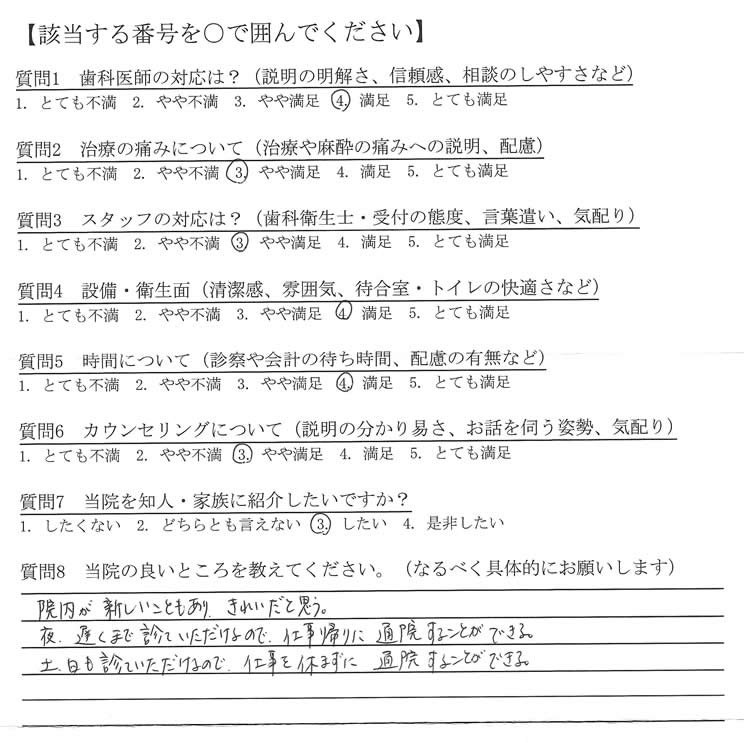 【該当する番号を○で囲んでください】
質問1 歯科医師の対応は？（説明の明解さ、信頼感、相談のしやすさなど）
1. とても不満 2. やや不満 3. やや満足 4. 満足 5. とても満足
質問2 治療の痛みについて（治療や麻酔の痛みへの説明、配慮）
1. とても不満 2. やや不満 3. やや満足 4. 満足 5. とても満足
質問3 スタッフの対応は？（歯科衛生士・受付の態度、言葉遣い、気配り）
1. とても不満 2. やや不満 3 やや満足 4. 満足 5. とても満足
質問4 設備・衛生面（清潔感、雰囲気、待合室・トイレの快適さなど）
1. とても不満 2. やや不満 3. やや満足 4. 満足 5. とても満足
質問5 時間について（診察や会計の待ち時間、配慮の有無など）
1. とても不満 2. やや不満 3. やや満足 4. 満足 5. とても満足
質問6 カウンセリングについて（説明の分かり易さ、お話を伺う姿勢、気配り）
1. とても不満 2. やや不満 3. やや満足 4. 満足 5. とても満足
質問7 当院を知人・家族に紹介したいですか？
1. したくない 2. どちらとも言えない 3. したい 4. 是非したい
質問8 当院の良いところを教えてください。（なるべく具体的にお願いします）
院内が新しいこともあり、きれいだと思う。
夜、遅くまで診ていただけるので、仕事帰りに通院することができる。
土、日も診ていただけるので、仕事を休まずに通院することができる。